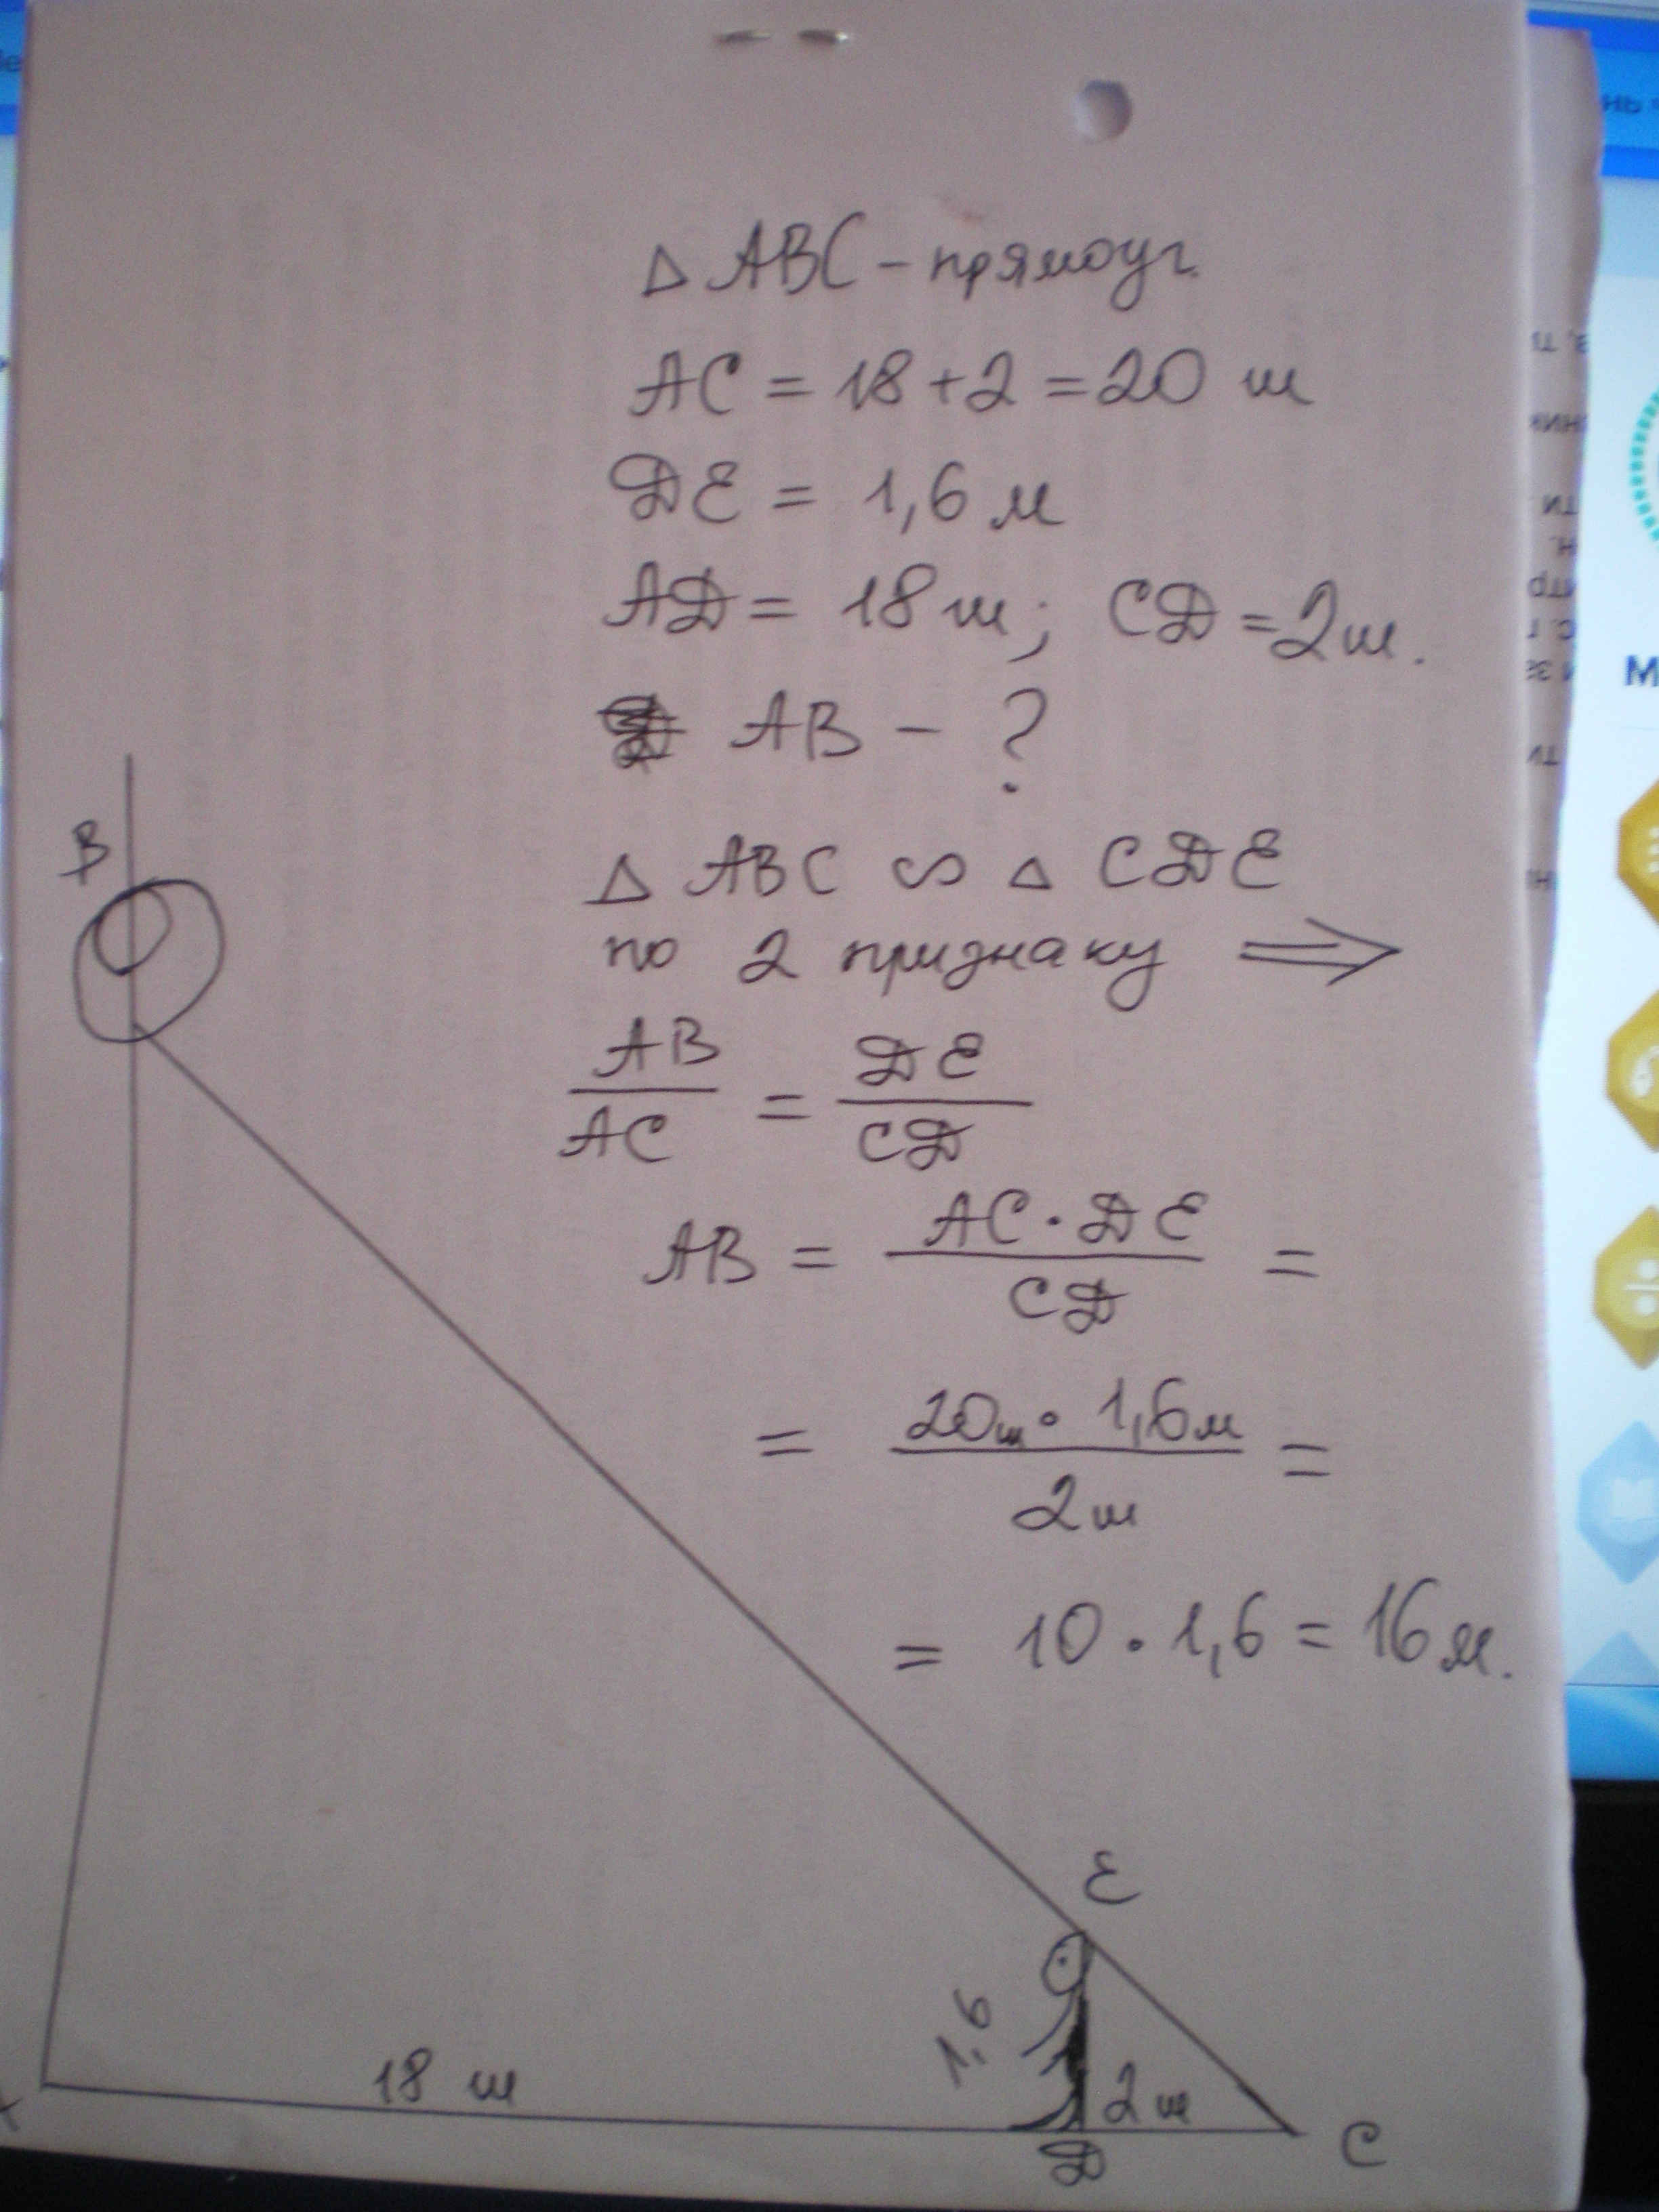 △ ABC – прямоуг.
AC = 18 + 2 = 20 ш
DE = 1,6 м
AD = 18 ш; CD = 2 ш.
AB – ?
△ ABC ∽ △ CDE
по 2 признаку ⟹
AB/AC = DE/CD
AB = AC · DE/CD =
= 20ш · 1,6м/2ш =
= 10 · 1,6 = 16 м.
B
E
1,6
18 ш
2 ш
D
C